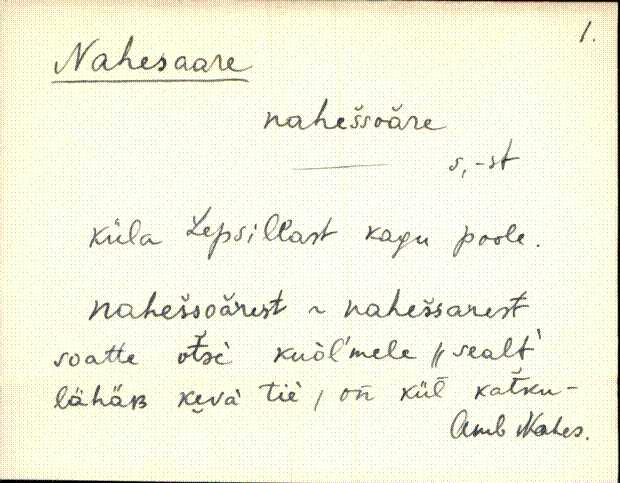 1.
Nahesaare
nahešsoăre
s, -st
küla Lepsillast kagu poole.
nahešsoărest ~ nahešsarest
soatte otsè kuòl'mele, sealt'
lähäʙ kevà tiè, on kül katku-
Amb Nahes.